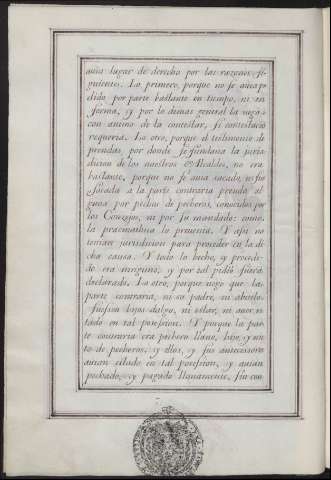 auia lugar de derecho por las razones si-
guientes. Lo primero, porque no se auia pe-
dido por parte bastante en tiempo, ni en
forma, y por lo demas general lo nego
con animo de la contestar, si contestacio
requeria. Lo otro, porque el testimonio de
prendas, por donde se fundaua la juris
dicion de los nuestros Alcaldes, no era
bastante, porque no se auia sacado, ni fue
sacada a la parte contraria prenda al
guna por pechos de pecheros, conocidos por
los Conzejos, ni por su mandado: como
la pracmathica lo preuenia. Y assi no
teniaxe jurisdicion para proceder en la di
cha causa. Y todo lo hecho, y procedi-
do era ninguno, y por tal pidio fuera
declarado. Lo otro, porque nego que la
parte contraria, ni su padre, ni abuelo
fuessen hijos dalgo, ni estar, ni auer es
tado en tal possession. Y porque la par
te contraria era pechero llano, hijo, y nie
to de pecheros, y ellos, y sus antecessores
auian estado en tal possession, y auian
pechado, y pagado llanamente, sin con